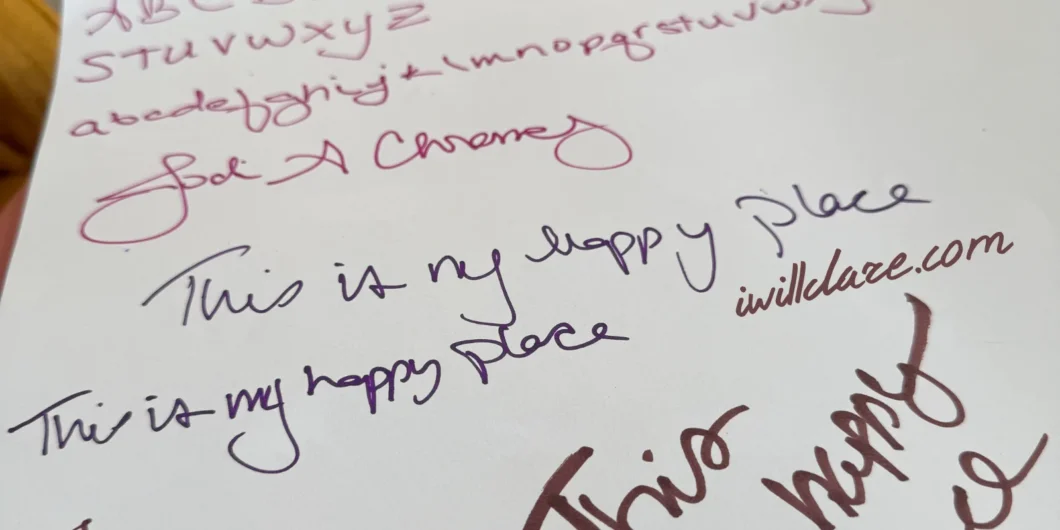 ABC
STUVWXYZ
abcdefghijklmnopqrstuvw
Jodi A Chromey
This is my happy place
iwilldare.com
This is my happy place
This
happy